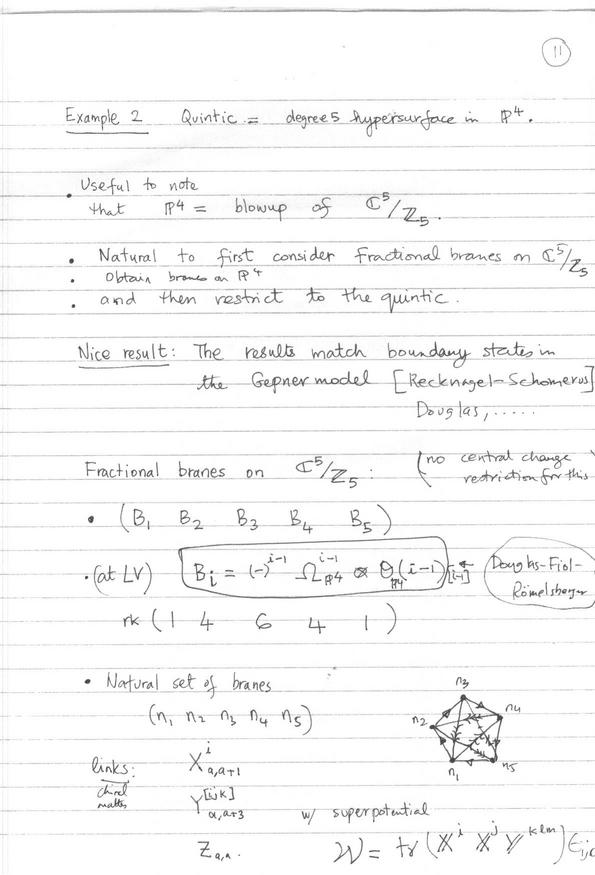 11
Example 2 Quintic = degree 5 hypersurface in ℙ⁴.
• Useful to note
that ℙ4 = blowup of ℂ⁵/ℤ₅.
• Natural to first consider fractional branes on ℂ⁵/ℤ₅
• Obtain branes on ℙ⁴
• and then restrict to the quintic.
Nice result: The results match boundary states in
the Gepner model [Recknagel-Schomerus]
Douglas, .....
Fractional branes on ℂ⁵/ℤ₅ : (no central charge
restriction for this
• (B₁ B₂ B₃ B₄ B₅)
• (at LV) Bᵢ = (-)^{i-1} Ω^{i-1}_{ℙ4} ⊗ O_{ℙ4}(i-1) [i-1] ← Douglas-Fiol-
Römelsberger
rk (1 4 6 4 1)
• Natural set of branes
(n₁ n₂ n₃ n₄ n₅)
n₃
n₄
n₂
n₁ n₅
links: X^i_{a,a+1}
chiral
matter Y^{[ijk]}_{a,a+3} w/ superpotential
Z_{a,a}. W = tr (X^i X^j Y^{klm}) ϵ_{ij